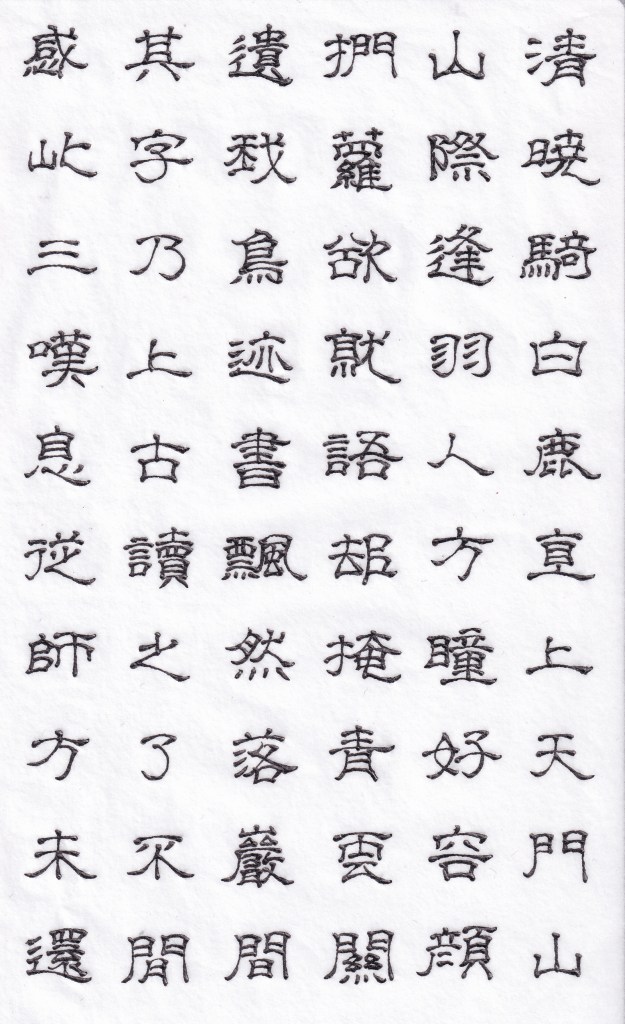 清曉騎白鹿直上天門山
山際逢羽人方瞳好容顏
捫蘿欲就語却掩青雲關
遺我鳥迹書飄然落巖間
其字乃上古讀之了不閒
感此三嘆息從師方未還